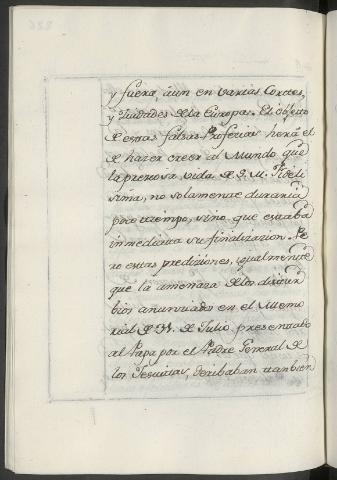 y fuera, aun en varias Cortes,
y Ciudades de la Europa. El objeto
de estas falsas Profecias herà el
de hazer creer al Mundo que
la preciosa vida de S. M. Fideli
sima, no solamente duraria
poco tiempo, sino que estaba
inmediata su finalizacion. Pe
ro estas prediciones, igualmente
que la amenaza de los distur
bios anunciados en el Memo
rial de 31. de Julio presentado
al Papa por el Padre General de
los Jesuitas, deribaban tambien